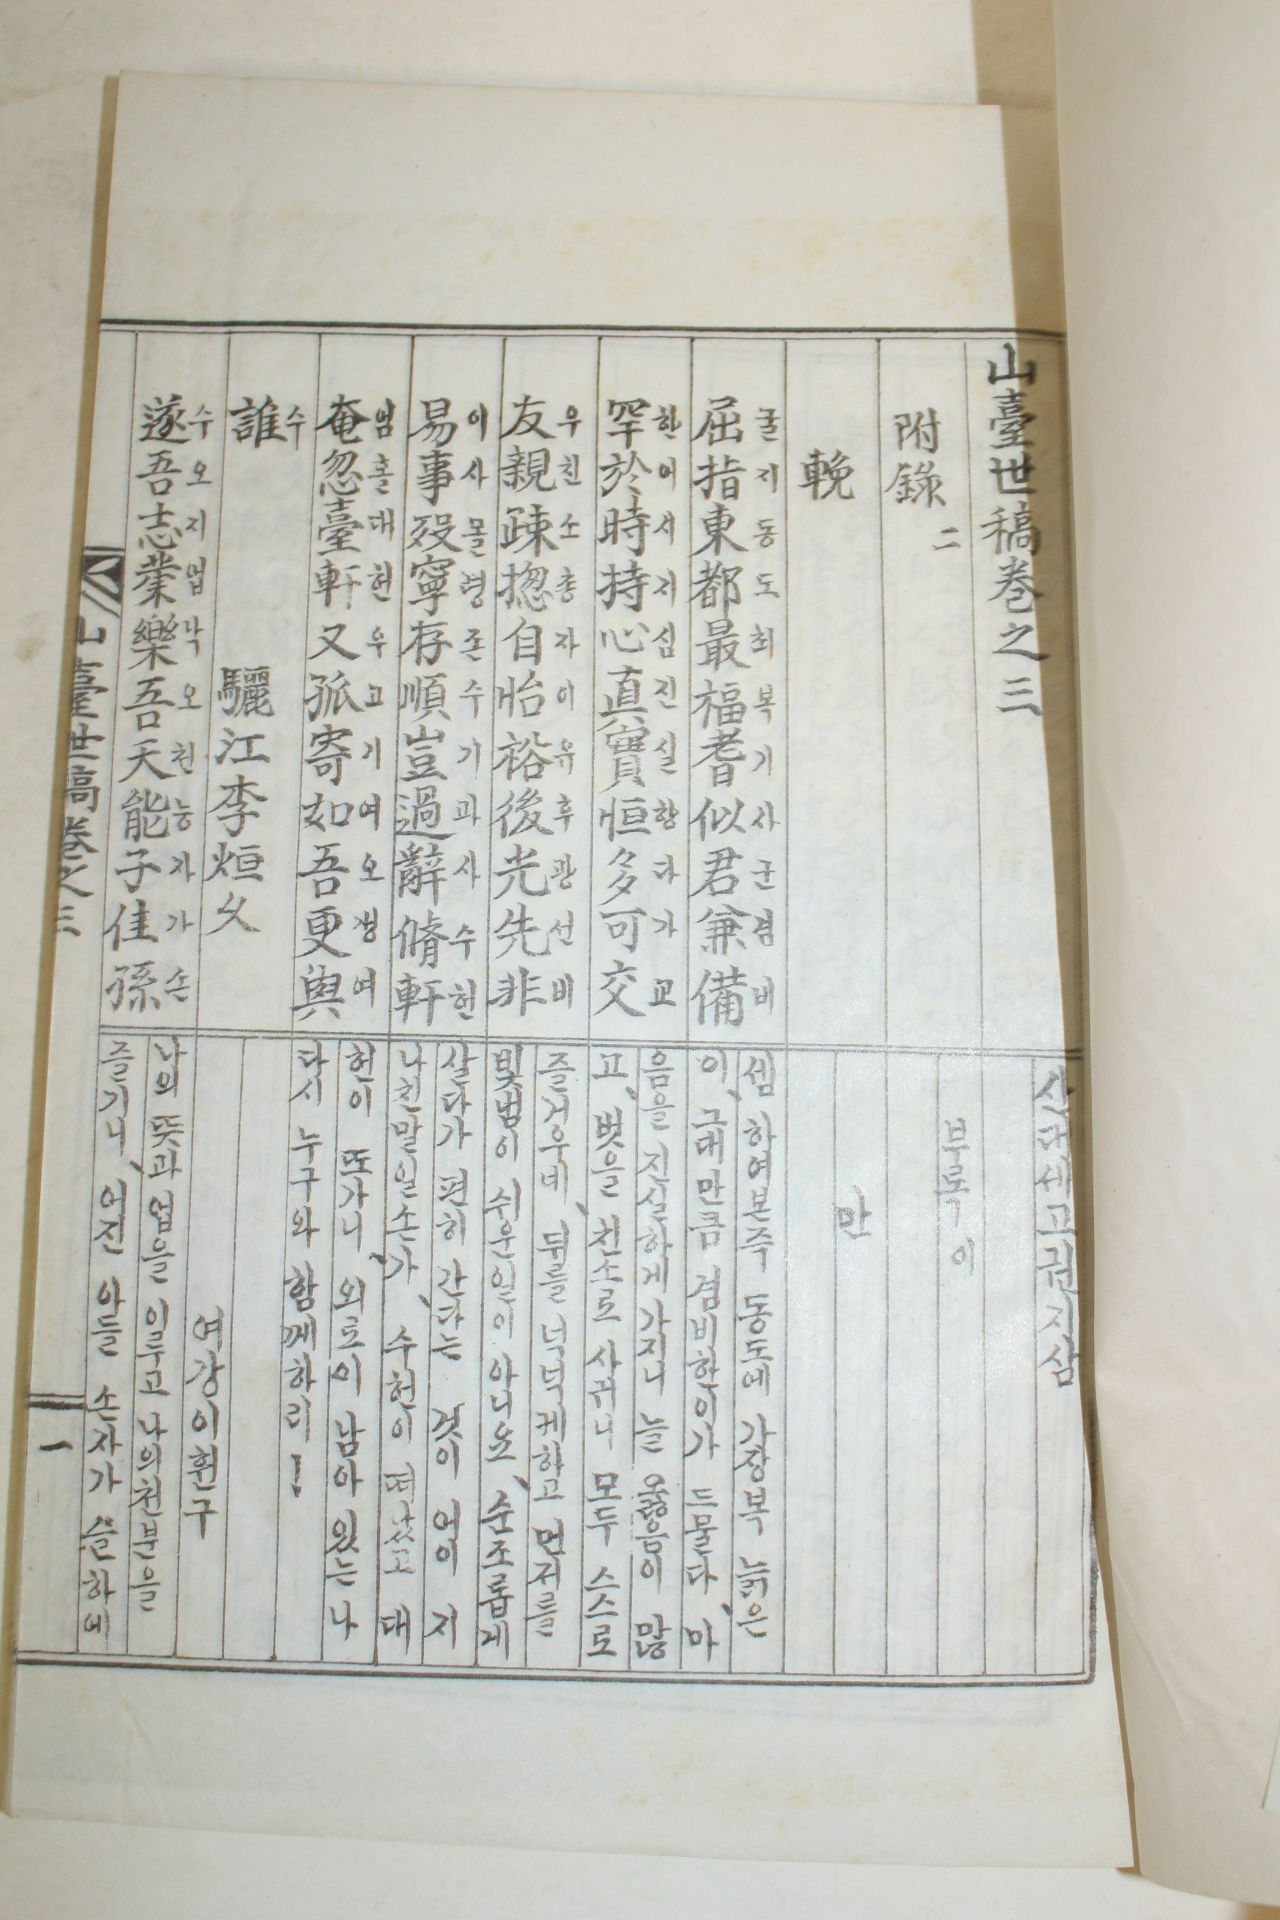 山臺世稿卷之三
산대세고권지삼
附錄 二
부록 이
輓
만
屈指東都最福耆似君兼備
굴지동도최복기사군겸비
셈 하여본즉 동도에 가장복 늙은
이、그대만큼 겸비한이가 드물다、마
罕於時持心直實恒多可交
한어시지심진실항다가교
음을 진실하게 가지니 늘 옳음이 많
고、벗을 친소로 사귀니 모두 스스로
友親疎摠自怡裕後光先非
우친소총자이유후광선비
즐거우네、뒤를 넉넉케하고 먼저를
빛냄이 쉬운일이 아니요、순조롭게
易事歿寧存順豈過辭脩軒
이사몰령존수기과사수헌
살다가 편히 간다는 것이 어이 지
나친말일손가、수헌이 떠났고 대
奄忽臺軒又孤寄如吾更與
엄홀대헌우고기여오갱여
헌이 또가니、외로이 남아 있는 나
다시 누구와 함께하리ㅡ
誰
수
驪江李烜久
여강이훤구
遂吾志業樂吾天能子佳孫
수오지업낙오천능자가손
나의 뜻과 업을 이루고 나의천분을
즐기니、어진 아들 손자가 슬하에
山臺世稿卷之三
一